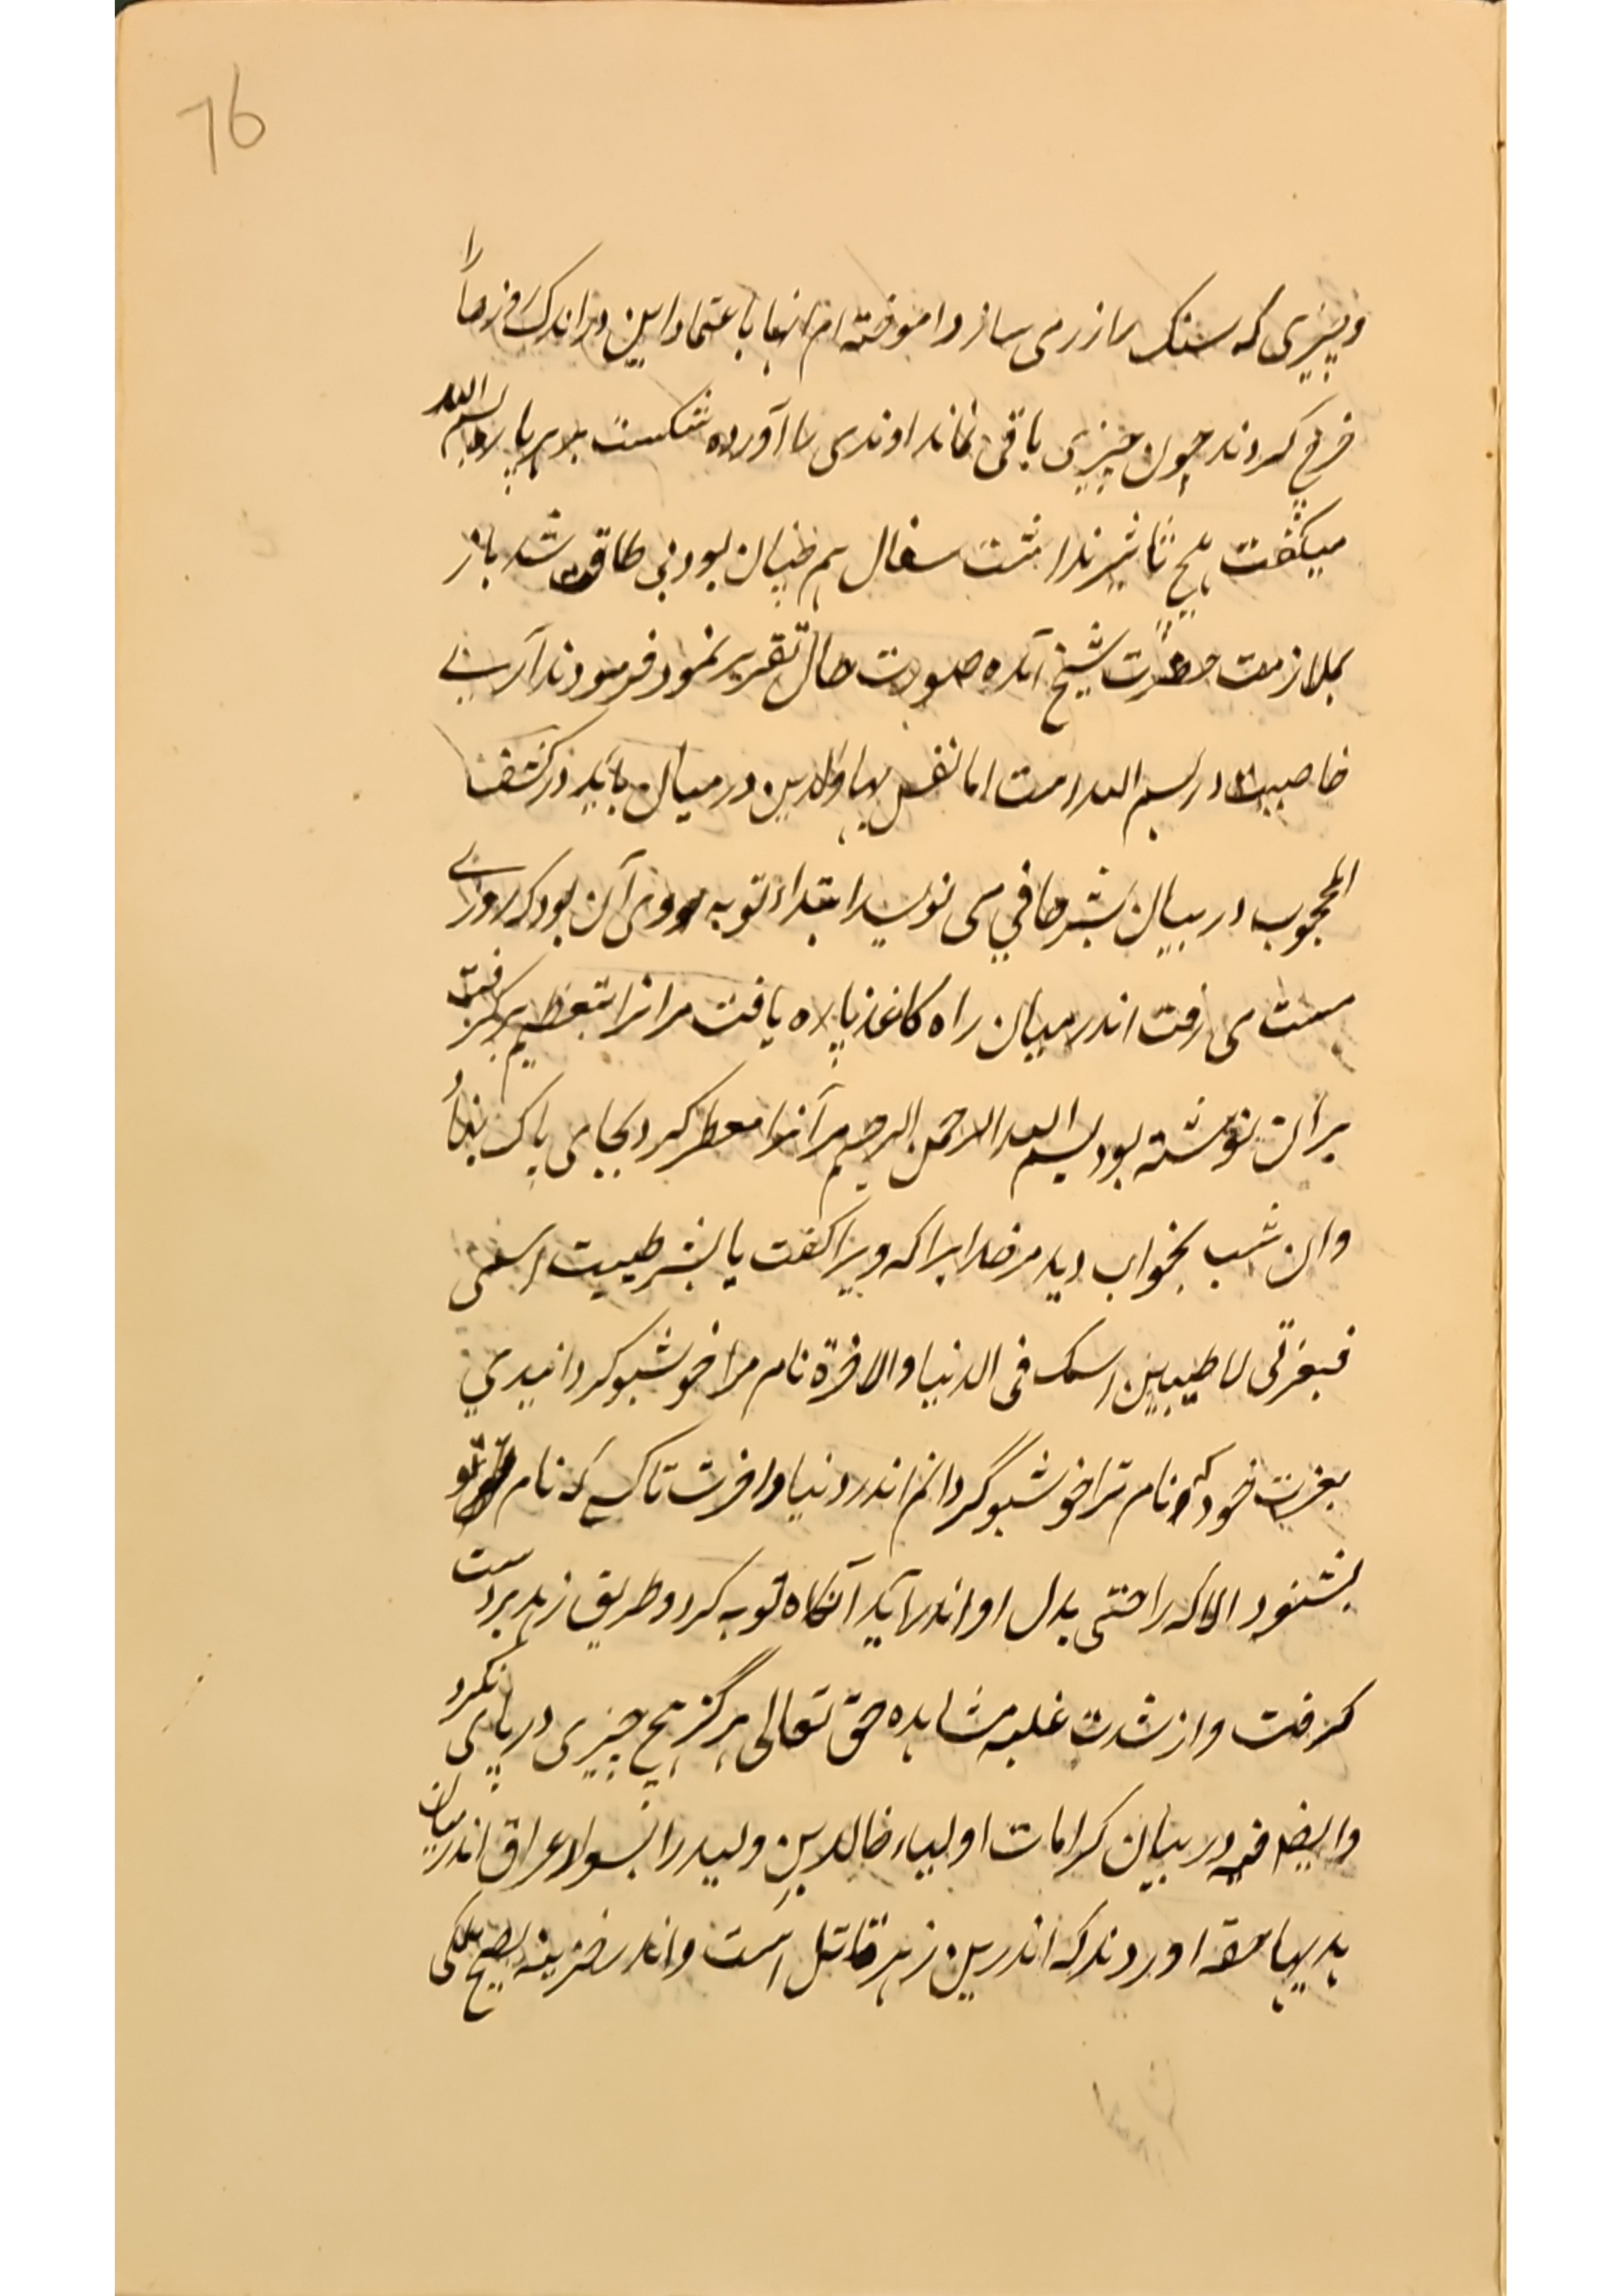 76
و چیزی که سنک را زر می سازد اموخته ام انها باعتماد این در اندک فرصا را
خرچ کردند چون چیزی باقی نماند اوندی را آورده شکست بر هر پاره بسم الله
میکفت هیچ تاثیر نداشت سفال هم چنان بود بی طاقت شد باز
بملازمت حضرت شیخ آمده صورت حال تقریر نمود فرمودند آرے
خاصیت در بسم الله است اما نفس بهاوالدین در میان باید در کشف
المحجوب در بیان بشر حافي می نویسد ابتداء توبه وی آن بود که روزے
مست می رفت اندر میان راه کاغذ پاره یافت مر انرا بتعظیم برکرفت
بران نوشته بود بسم الله الرحمن الرحیم مر آنرا معطر کرد بجای پاک بنهاد
وان شب بخواب دید مر خدایرا که ویرا کفت یا بشر طیبت اسمی
فبعزتی لاطیبن اسمک فی الدنیا والاخرة نام مرا خوشبو کردانیدي
بعزت خود که نام ترا خوشبو گردانم اندر دنیا و اخرت تا کسے که نام تو
بشنود الا که راحتی بدل او اندر آید آنکاه توبه کرد و طریق زهد بردست
کرفت و از شدت غلبه مشاهده حق تعالی هرگز هیچ چیزی در پای نکرد
وایضا فیه در بیان کرامات اولیاء خالد بن ولید را بسواد عراق اندر میان
هدیها حقه اوردند که اندرین زهر قاتل است و اندر خزینه هیچ ملکی